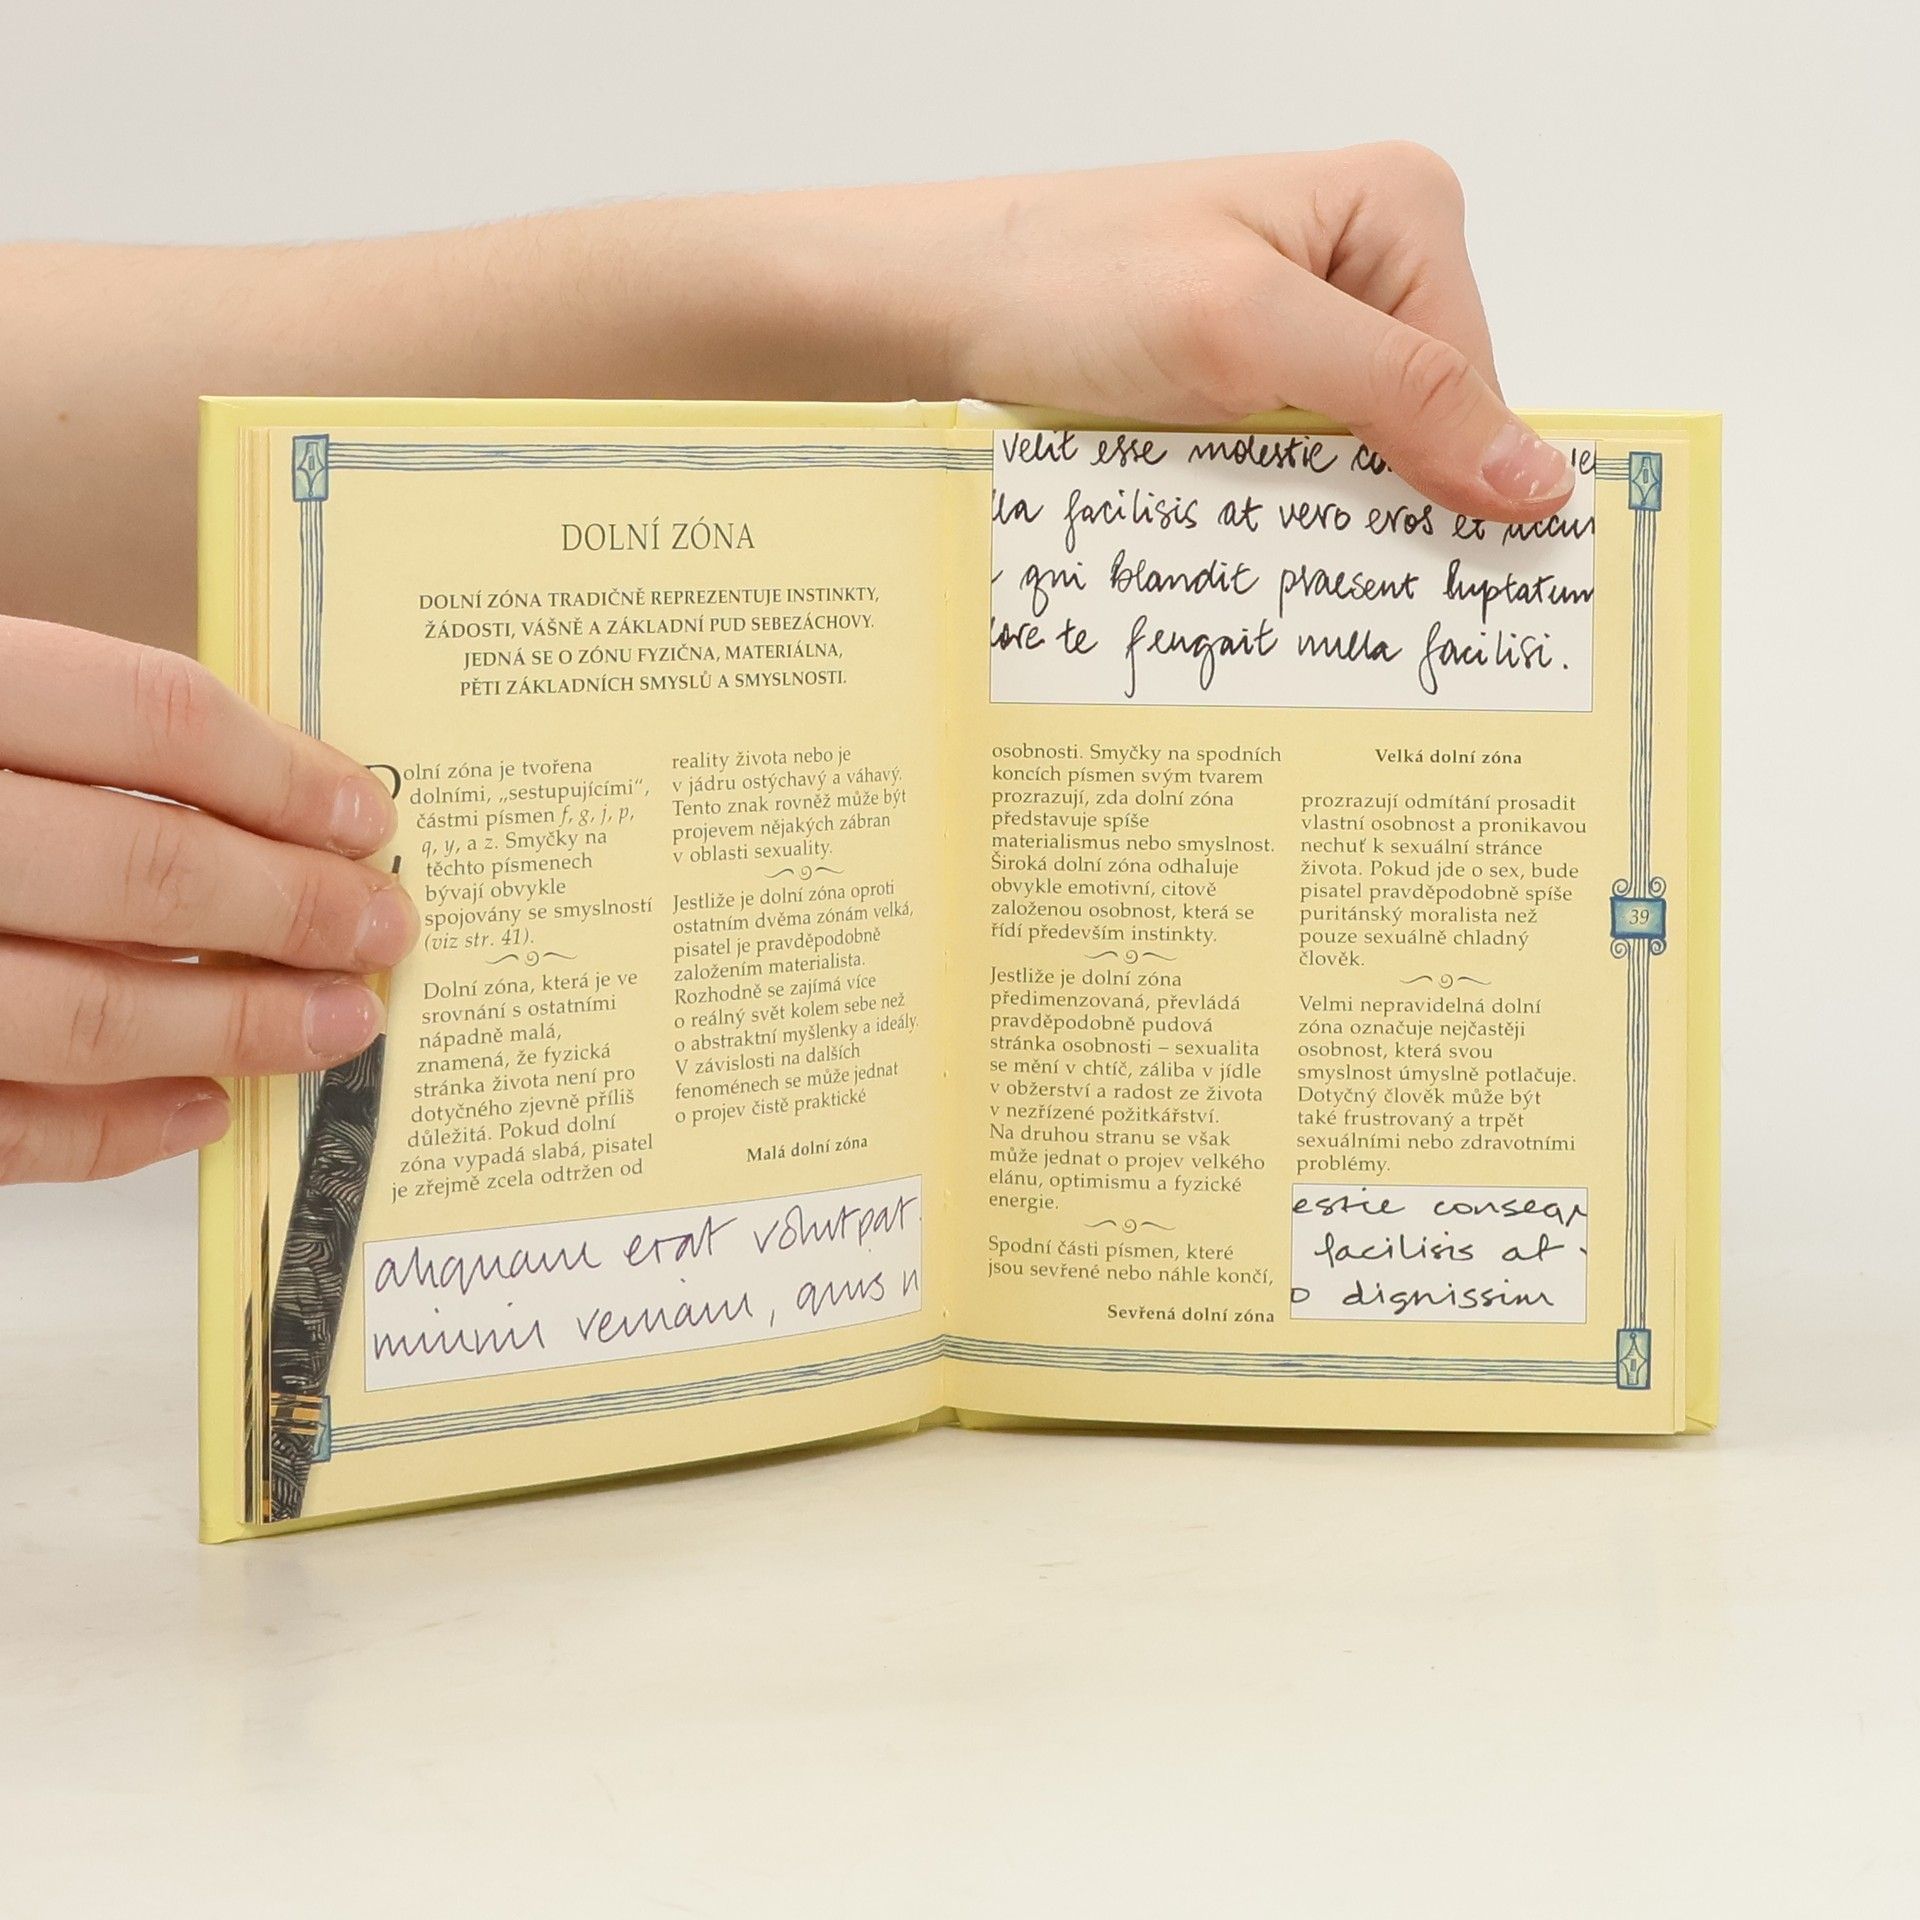 DOLNÍ ZÓNA
DOLNÍ ZÓNA TRADIČNĚ REPREZENTUJE INSTINKTY,
ŽÁDOSTI, VÁŠNĚ A ZÁKLADNÍ PUD SEBEZÁCHOVY.
JEDNÁ SE O ZÓNU FYZIČNA, MATERIÁLNA,
PĚTI ZÁKLADNÍCH SMYSLŮ A SMYSLNOSTI.
Dolní zóna je tvořena
dolními, „sestupujícími“,
částmi písmen f, g, j, p,
q, y, a z. Smyčky na
těchto písmenech
bývají obvykle
spojovány se smyslností
(viz str. 41).
Dolní zóna, která je ve
srovnání s ostatními
nápadně malá,
znamená, že fyzická
stránka života není pro
dotyčného zjevně příliš
důležitá. Pokud dolní
zóna vypadá slabá, pisatel
je zřejmě zcela odtržen od
reality života nebo je
v jádru ostýchavý a váhavý.
Tento znak rovněž může být
projevem nějakých zábran
v oblasti sexuality.
Jestliže je dolní zóna oproti
ostatním dvěma zónám velká,
pisatel je pravděpodobně
založením materialista.
Rozhodně se zajímá více
o reálný svět kolem sebe než
o abstraktní myšlenky a ideály.
V závislosti na dalších
fenoménech se může jednat
o projev čistě praktické
Malá dolní zóna
aliquam erat volutpat.
minim veniam, quis n
velit esse molestie
lla facilisis at vero eros et accum
qui blandit praesent luptatum
lore te feugait nulla facilisi.
osobnosti. Smyčky na spodních
koncích písmen svým tvarem
prozrazují, zda dolní zóna
představuje spíše
materialismus nebo smyslnost.
Široká dolní zóna odhaluje
obvykle emotivní, citově
založenou osobnost, která se
řídí především instinkty.
Jestliže je dolní zóna
předimenzovaná, převládá
pravděpodobně pudová
stránka osobnosti – sexualita
se mění v chtíč, záliba v jídle
v obžerství a radost ze života
v nezřízené požitkářství.
Na druhou stranu se však
může jednat o projev velkého
elánu, optimismu a fyzické
energie.
Spodní části písmen, které
jsou sevřené nebo náhle končí,
Sevřená dolní zóna
Velká dolní zóna
prozrazují odmítání prosadit
vlastní osobnost a pronikavou
nechuť k sexuální stránce
života. Pokud jde o sex, bude
pisatel pravděpodobně spíše
puritánský moralista než
pouze sexuálně chladný
člověk.
Velmi nepravidelná dolní
zóna označuje nejčastěji
osobnost, která svou
smyslnost úmyslně potlačuje.
Dotyčný člověk může být
také frustrovaný a trpět
sexuálními nebo zdravotními
problémy.
estie consequ
facilisis at
o dignissim
39